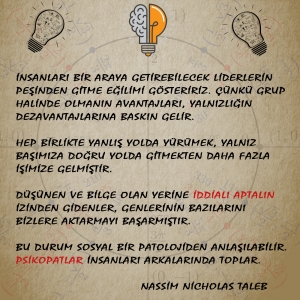 İNSANLARI BİR ARAYA GETİREBİLECEK LİDERLERİN
PEŞİNDEN GİTME EĞİLİMİ GÖSTERİRİZ. ÇÜNKÜ GRUP
HALİNDE OLMANIN AVANTAJLARI, YALNIZLIĞIN
DEZAVANTAJLARINA BASKIN GELİR.
HEP BİRLİKTE YANLIŞ YOLDA YÜRÜMEK, YALNIZ
BAŞIMIZA DOĞRU YOLDA GİTMEKTEN DAHA FAZLA
İŞİMİZE GELMİŞTİR.
DÜŞÜNEN VE BİLGE OLAN YERİNE İDDİALI APTALIN
İZİNDEN GİDENLER, GENLERİNİN BAZILARINI
BİZLERE AKTARMAYI BAŞARMIŞTIR.
BU DURUM SOSYAL BİR PATOLOJİDEN ANLAŞILABİLİR.
PSİKOPATLAR İNSANLARI ARKALARINDA TOPLAR.
NASSİM NİCHOLAS TALEB